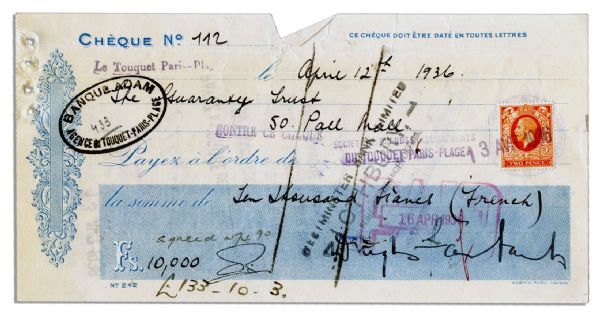 CHÈQUE Nº 112
CE CHÈQUE DOIT ÊTRE DATÉ EN TOUTES LETTRES
Le Touquet Paris-Pla
le April 12th 1936.
BANQUE ADAM
433
AGENCE du TOUQUET-PARIS-PLAGE
The Guaranty Trust
50. Pall Mall
CONTRE CE CHÈQUE
SOCIÉTÉ
DU TOUQUET-PARIS-PLAGE
13 AV
TWO PENCE
Payez à l'ordre de
WESTMINSTER BANK LIMITED
la somme de Ten thousand Francs (French)
PAID
16 APR 193
agreed
Fs. 10,000
£133-10-3.
Nº 242